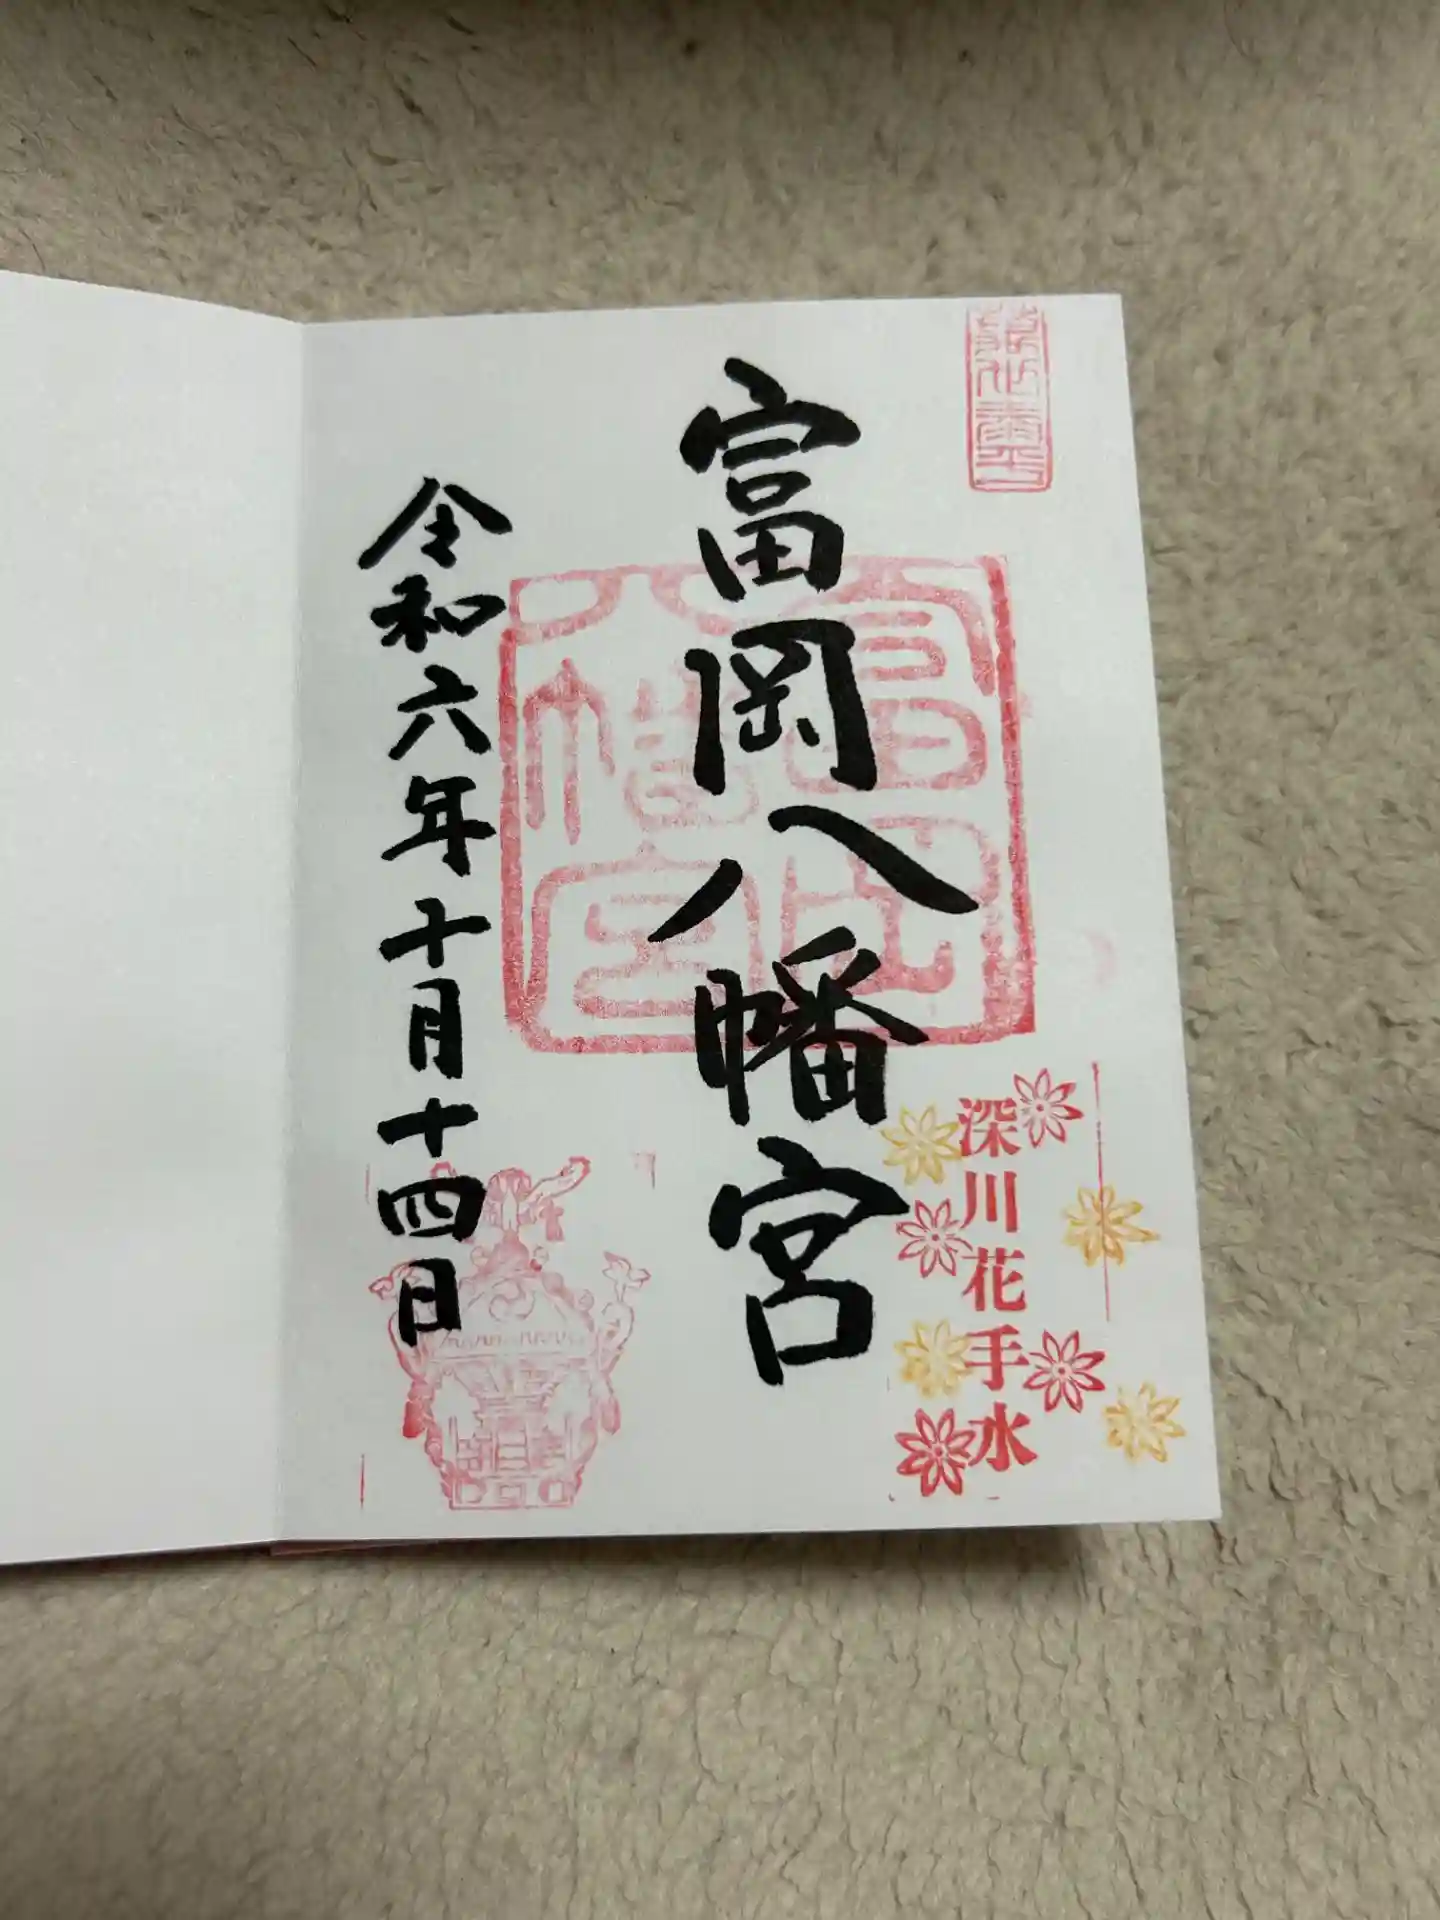 富岡八幡宮
富岡八幡宮
深川花手水
令和六年十月十四日